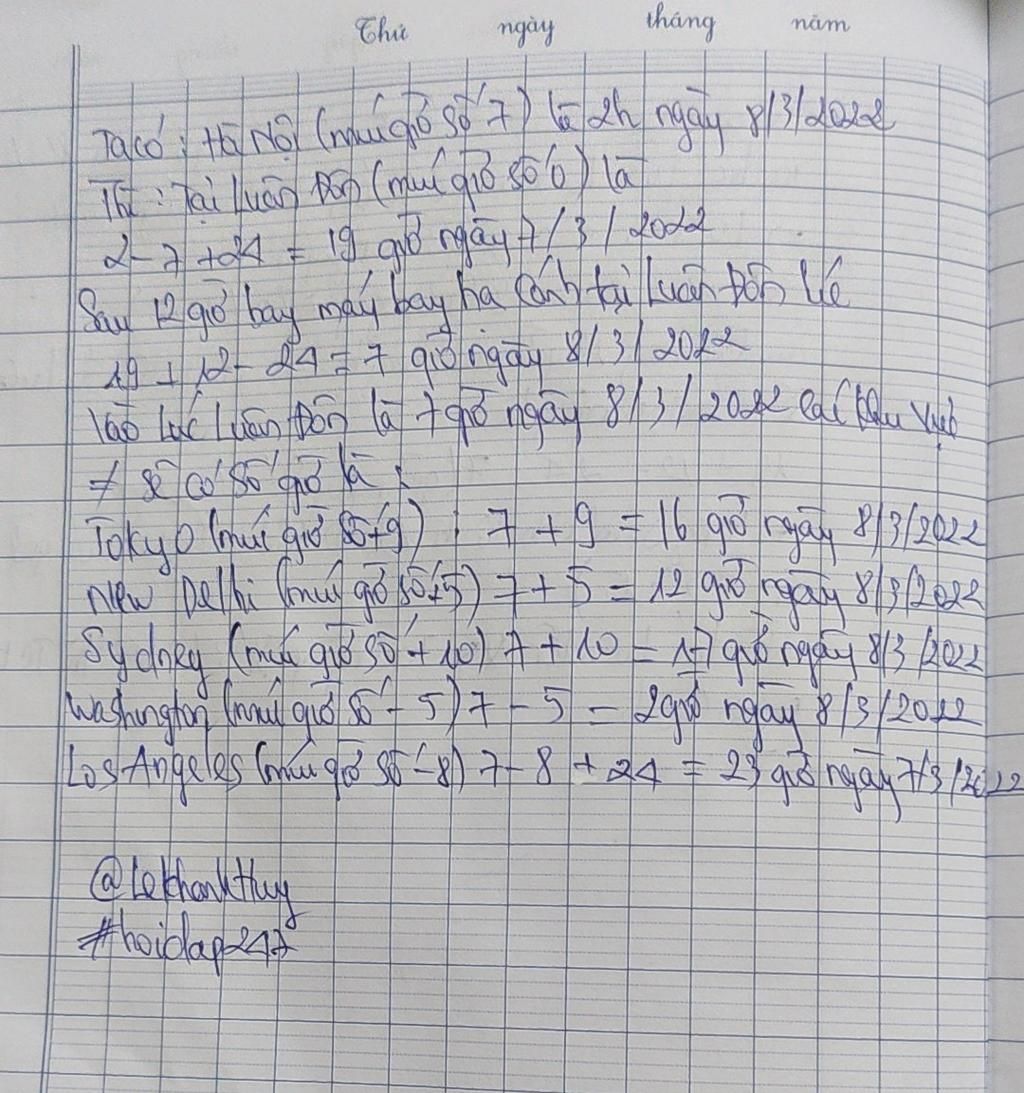 Thứ ngày tháng năm
Ta có : Hà Nội (múi giờ số 7) là 2h ngày 8/3/2022
Thì : Tại Luân Đôn (múi giờ số 0) là
2 - 7 + 24 = 19 giờ ngày 7/3/2022
Sau 12 giờ bay máy bay hạ cánh tại Luân Đôn
19 + 12 - 24 = 7 giờ ngày 8/3/2022
Vào lúc Luân Đôn là 7 giờ ngày 8/3/2022 các khu vực
≠ sẽ có số giờ là :
Tokyo (múi giờ số +9) : 7 + 9 = 16 giờ ngày 8/3/2022
New Delhi (múi giờ số +5) 7 + 5 = 12 giờ ngày 8/3/2022
Sydney (múi giờ số + 10) 7 + 10 = 17 giờ ngày 8/3/2022
Washington (múi giờ số - 5) 7 - 5 = 2 giờ ngày 8/3/2022
Los Angeles (múi giờ số -8) 7 - 8 + 24 = 23 giờ ngày 7/3/2022
@LekhanhHuy
#hoidap247